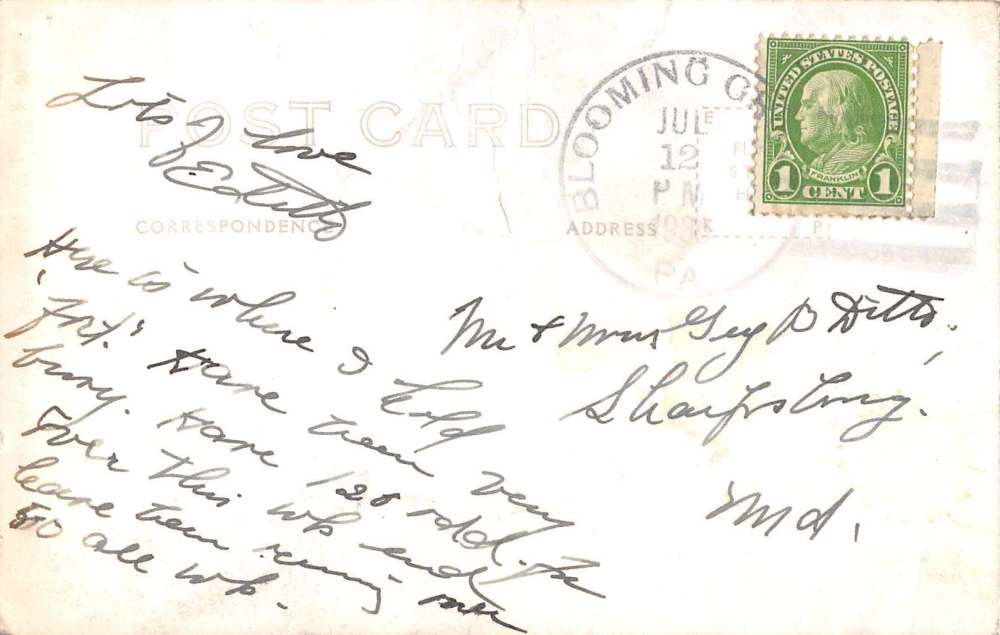 POST CARD
CORRESPONDENCE
ADDRESS
BLOOMING
JUL
12
PM
PA
UNITED STATES POSTAGE
FRANKLIN
1 CENT 1
Lots of love
Edith
Here is where I hold
"fort." Have been very
busy. Have 120 odd. for
over this wk end
have been running over
50 all wk.
Mr & Mrs Geo B Ditto,
Sharpsburg.
Md.